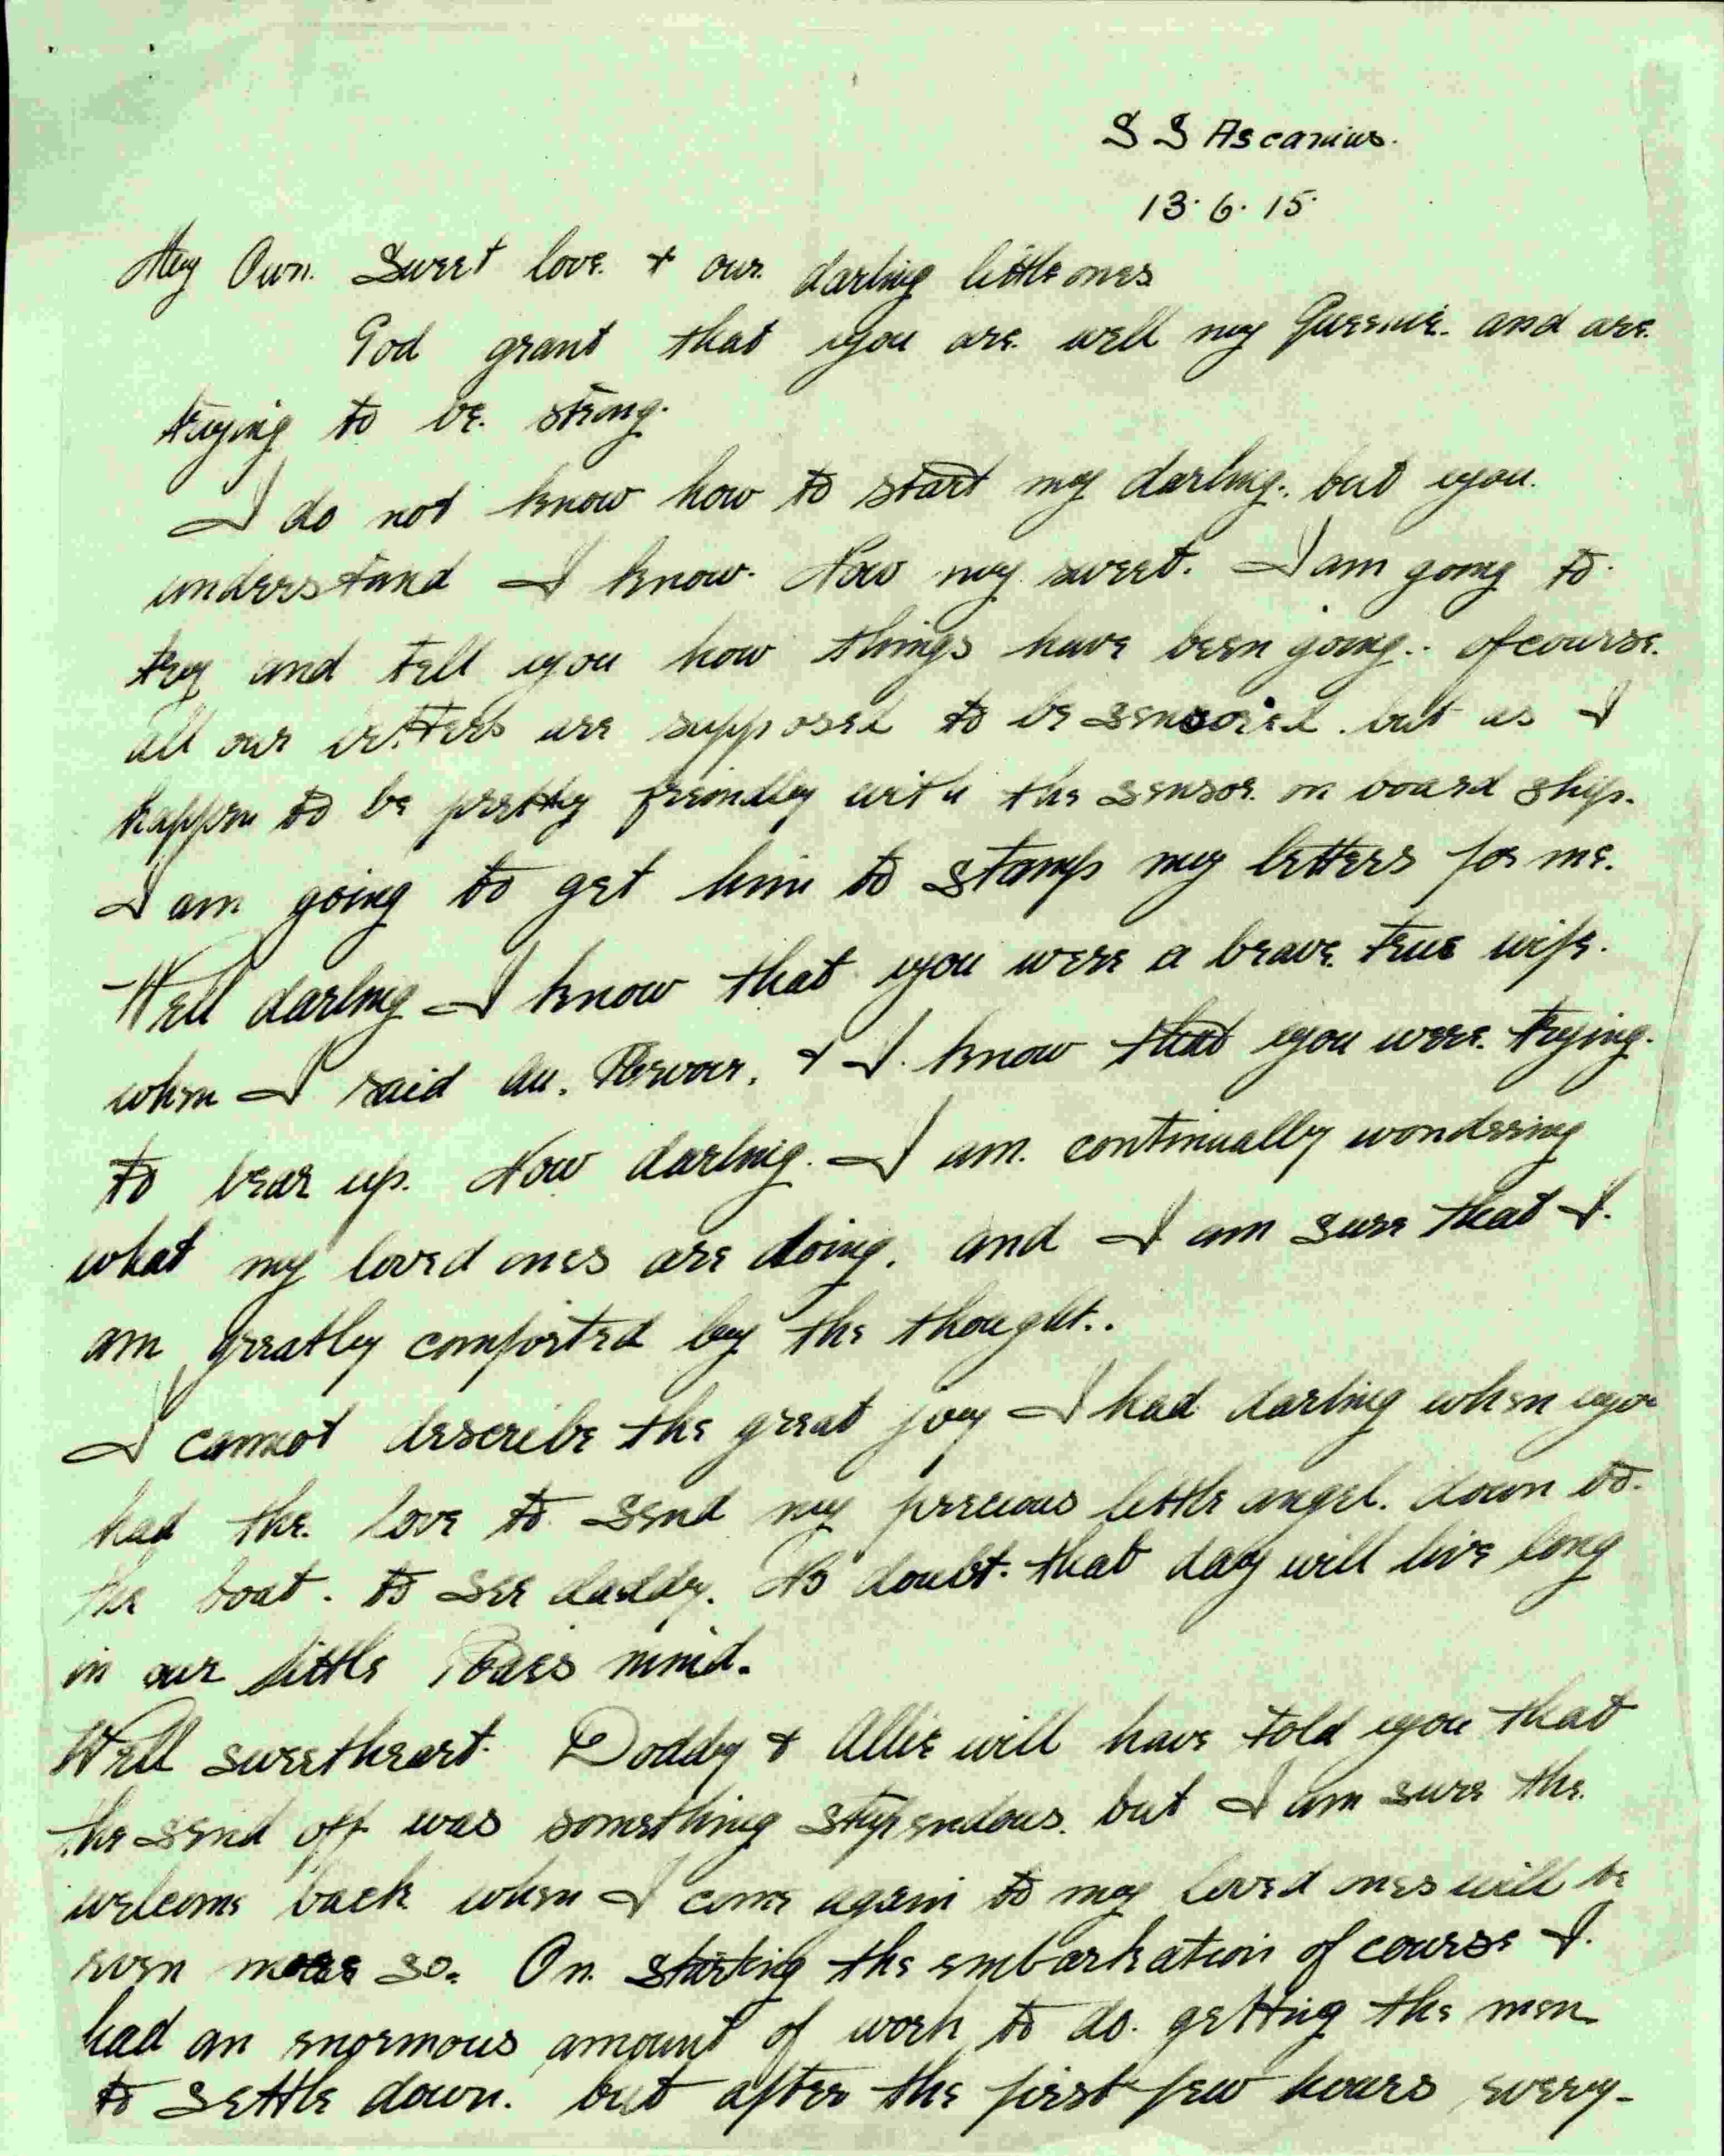 S S Ascanius.
13. 6. 15.
My Own. Sweet love. + our. darling little ones
God grant that you are. well my Queenie. and are.
trying to be. strong.
I do not know how to start my darling. but you.
understand I know. Now my sweet. I am going to.
try and tell you how things have been going.. ofcourse.
all our letters are supposed to be sensored. but as I
happen to be pretty freindley with the sensor. on board ship.
I am going to get him to stamp my letters for me.
Well darling I know that you were a brave. true wife.
when I said Au. Revoir. + I. know that you were. trying.
to bear up. Now darling. I am. continually wondering
what my loved ones are doing. and I am sure that I.
am greatley comforted by the thought..
I cannot describe the great joy I had darling when you
had the. love to send my precious little angel. down to.
the boat. to see daddy. No doubt. that day will live long
in our little mind.
Well sweetheart. Doddy + Allie will have told you that
the send off was something stupendous. but I am sure the.
welcome back when I come again to my loved ones will be
even more so. On. starting the embarkation of course I.
had an enormous amount of work to do. getting the men
to settle down. but after the first few hours every-